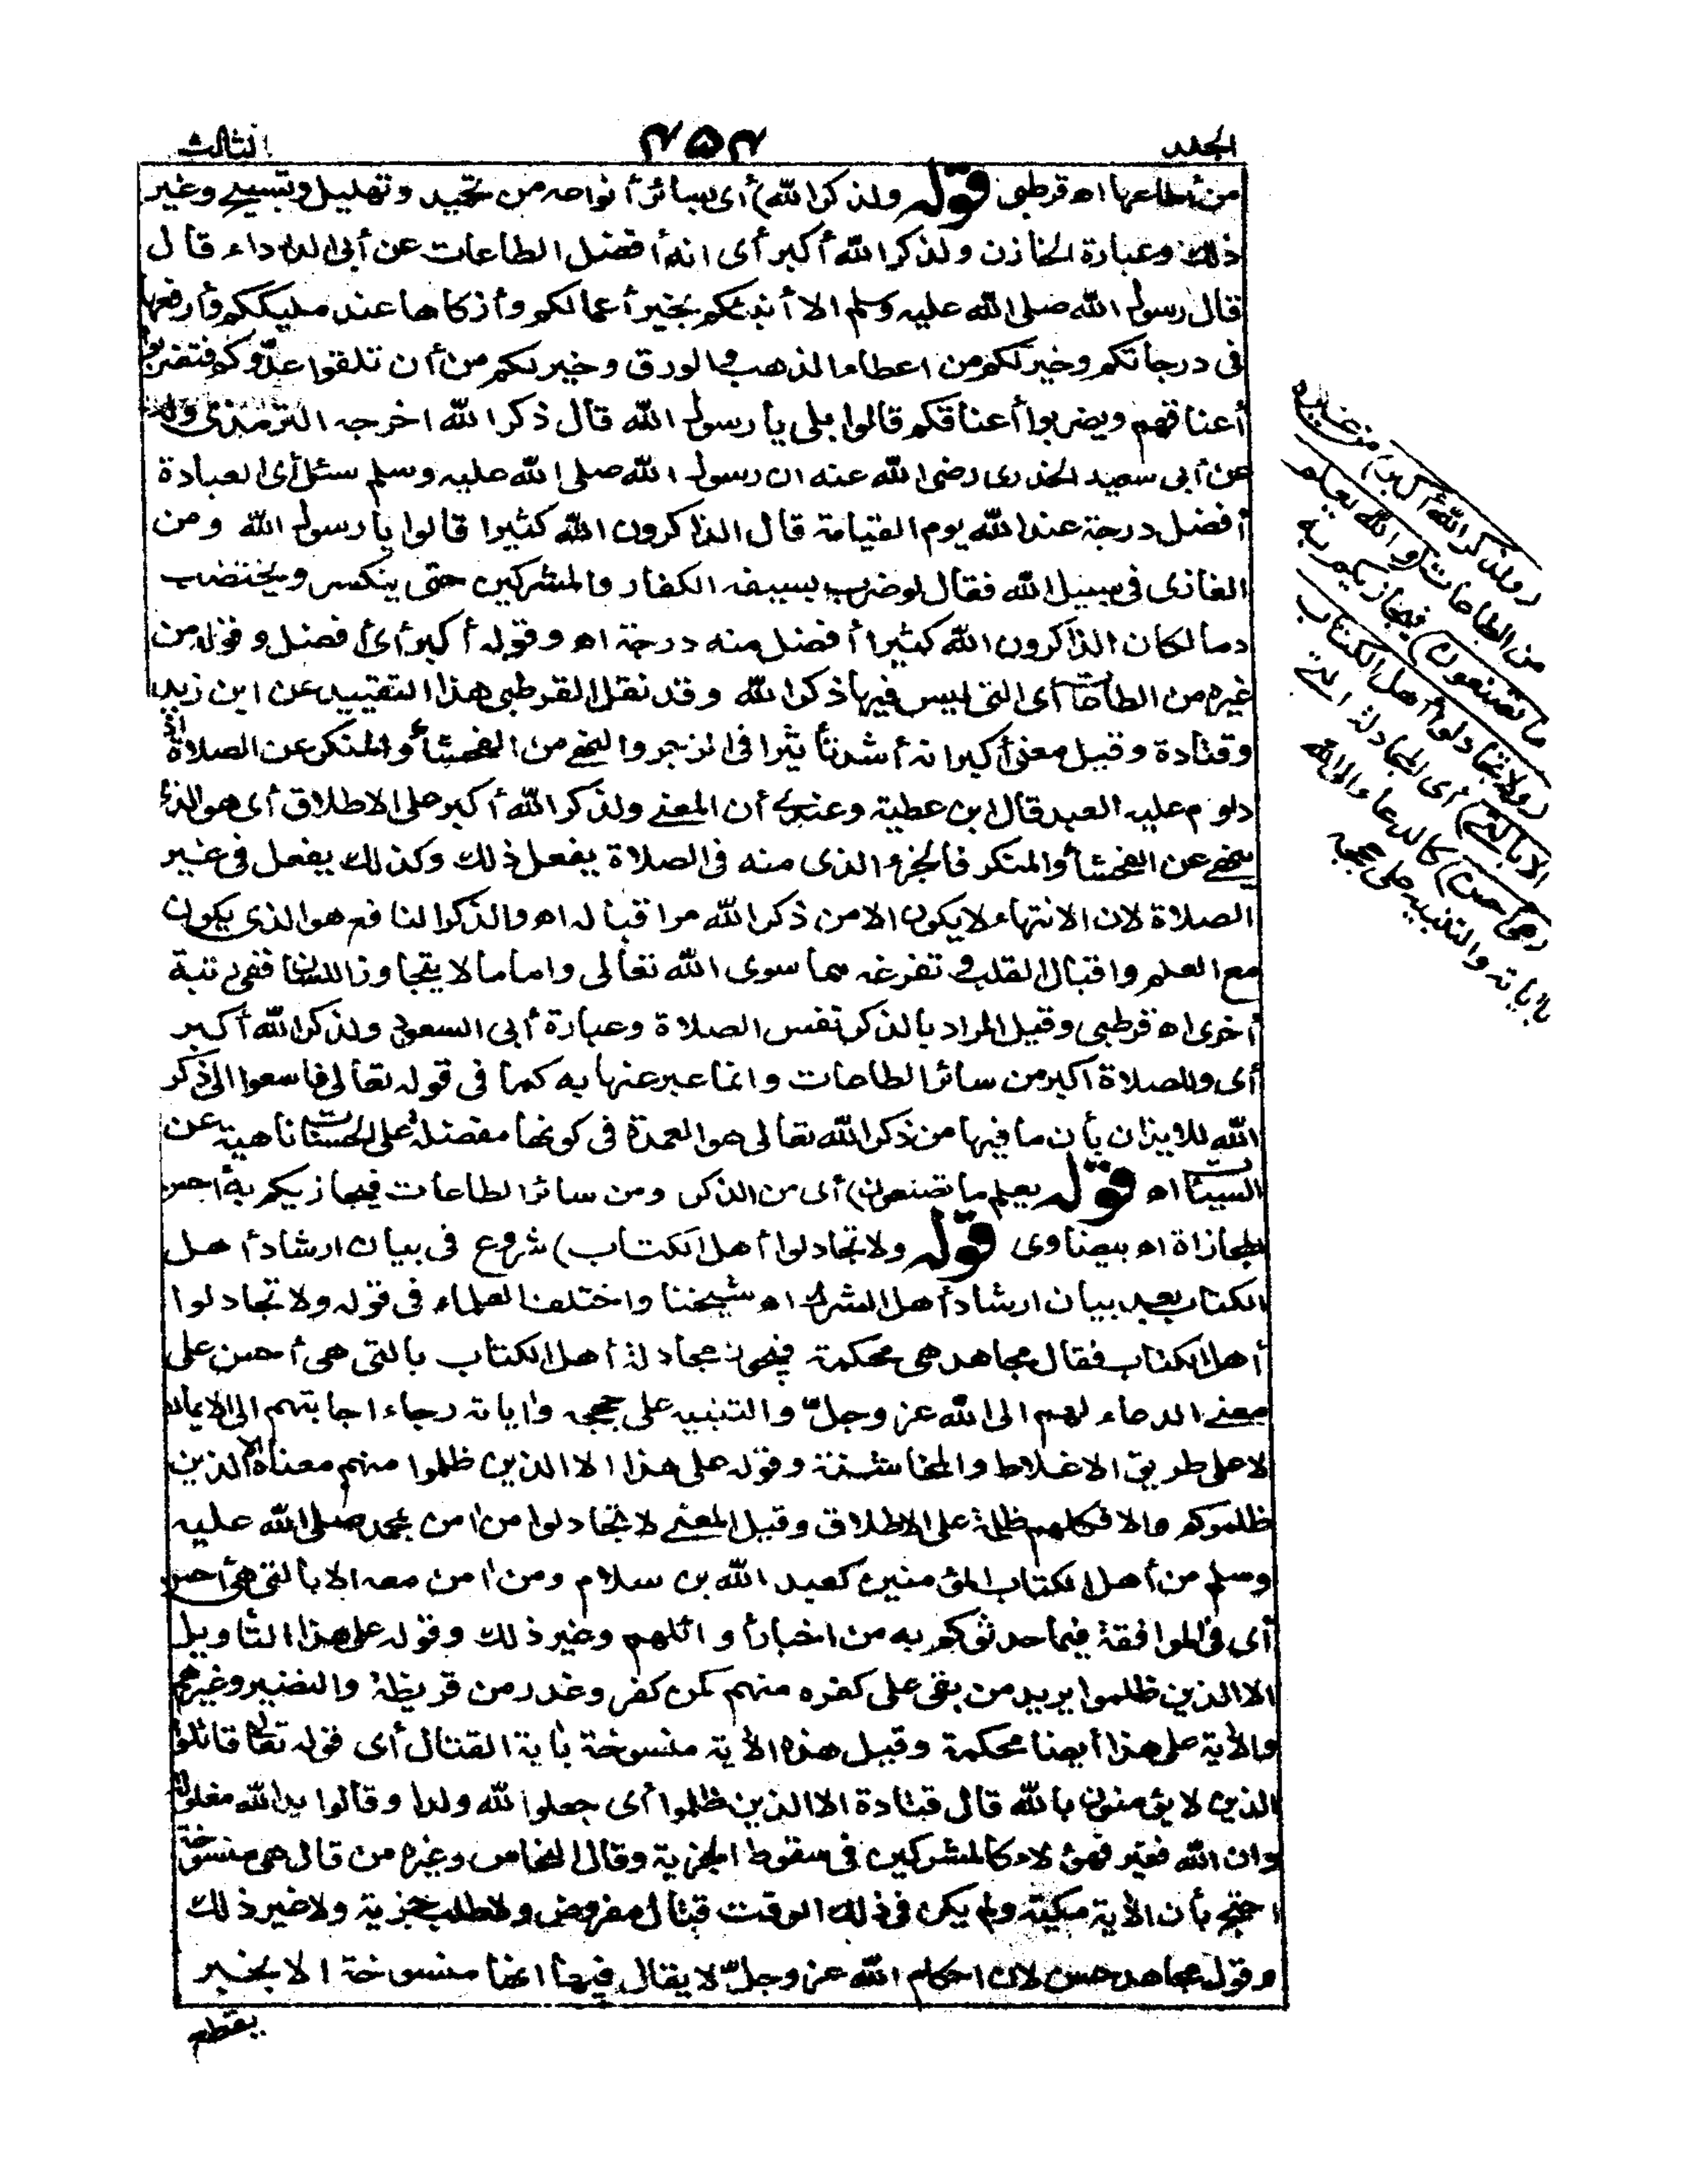 الجلد
۴۵۴
الثالث
من أطاعها اه قرطبى قوله ولذكر الله) أى بسائر أنواعه من تحميد وتهليل وتسبيح وغير
ذلك وعبارة الخازن ولذكر الله أكبر أى انه أفضل الطاعات عن أبى الدرداء قال
قال رسول الله صلى الله عليه وسلم الا أنبئكم بخير أعمالكم وأزكاها عند مليككم وأرفعها
فى درجاتكم وخير لكم من اعطاء الذهب والورق وخير لكم من أن تلقوا عدوكم فتضربوا
أعناقهم ويضربوا أعناقكم قالوا بلى يا رسول الله قال ذكر الله اخرجه الترمذى وله
عن أبى سعيد الخدرى رضى الله عنه ان رسول الله صلى الله عليه وسلم سئل أى العبادة
أفضل درجة عند الله يوم القيامة قال الذاكرون الله كثيرا قالوا يا رسول الله ومن
الغازى فى سبيل الله فقال لو ضرب بسيفه الكفار والمشركين حتى ينكسر ويختضب
دما لكان الذاكرون الله كثيرا أفضل منه درجة اه وقوله أكبر أى أفضل وقوله من
غيره من الطاعات أى التى ليس فيها ذكر الله وقد نقل القرطبى هذا التقييد عن ابن زيد
وقتادة وقيل معنى أكبر انه أشد تأثيرا فى الزجر والنهى من الفحشاء والمنكر عن الصلاة اذا
دلوم عليه العبد قال ابن عطية وعندى أن المعنى ولذكر الله أكبر على الاطلاق أى هو الذى
ينهى عن الفحشاء والمنكر فالجزء الذى منه فى الصلاة يفعل ذلك وكذلك يفعل فى غير
الصلاة لان الانتهاء لا يكون الا من ذكر الله مراقبا له اه والذكر النافع هو الذى يكون
مع العلم واقبال القلب وتفرغه مما سوى الله تعالى واما ما لا يتجاوز اللسان ففى رتبة
أخرى اه قرطبى وقيل المراد بالذكر نفس الصلاة وعبارة أبى السعود ولذكر الله أكبر
أى وللصلاة اكبر من سائر الطاعات وانما عبر عنها به كما فى قوله تعالى فاسعوا الى ذكر
الله للايذان بأن ما فيها من ذكر الله تعالى هو العمدة فى كونها مفضلة على الحسنات ناهية عن
السيئات اه قوله يعلم ما تصنعون) أى من الذكر ومن سائر الطاعات فيجازيكم به أحسن
المجازاة اه بيضاوى قوله ولا تجادلوا أهل الكتاب) شروع فى بيان ارشاد أهل
الكتاب بعد بيان ارشاد أهل الشرك اه شيخنا واختلف العلماء فى قوله ولا تجادلوا
أهل الكتاب فقال مجاهد هى محكمة فيجوز مجادلة أهل الكتاب بالتى هى أحسن على
معنى الدعاء لهم الى الله عز وجل والتنبيه على حججه وآياته رجاء اجابتهم الى الايمان
لا على طريق الاغلاط والمخاشنة وقوله على هذا الا الذين ظلموا منهم معناه الا الذين
ظلموكم والا فكلهم ظلمة على الاطلاق وقيل المعنى لا تجادلوا من امن بمحمد صلى الله عليه
وسلم من أهل الكتاب المؤمنين كعبد الله بن سلام ومن امن معه الا بالتى هى أحسن
أى فى الموافقة فيما حدثوكم به من اخبار أوائلهم وغير ذلك وقوله على هذا التأويل
الا الذين ظلموا يريد من بقى على كفره منهم كمن كفر وغدر من قريظة والنضير وغيرهم
والآية على هذا أيضا محكمة وقيل هذه الآية منسوخة بآية القتال أى قوله تعالى قاتلوا
الذين لا يؤمنون بالله قال قتادة الا الذين ظلموا أى جعلوا لله ولدا وقالوا يد الله مغلولة
وان الله فقير فهؤلاء كالمشركين فى سقوط الجزية وقال النحاس وغيره من قال هى منسوخة
احتج بأن الآية مكية ولم يكن فى ذلك الوقت قتال مفروض ولا طلب جزية ولا غير ذلك
وقول مجاهد حسن لان احكام الله عز وجل لا يقال فيها انها منسوخة الا بخبر
يقطع
(ولذكر الله أكبر) من غيره
من الطاعات (والله يعلم
ما تصنعون) فيجازيكم به
(ولا تجادلوا أهل الكتاب
الا بالتى) أى المجادلة التى
(هى أحسن) كالدعاء الى الله
بآياته والتنبيه على حججه